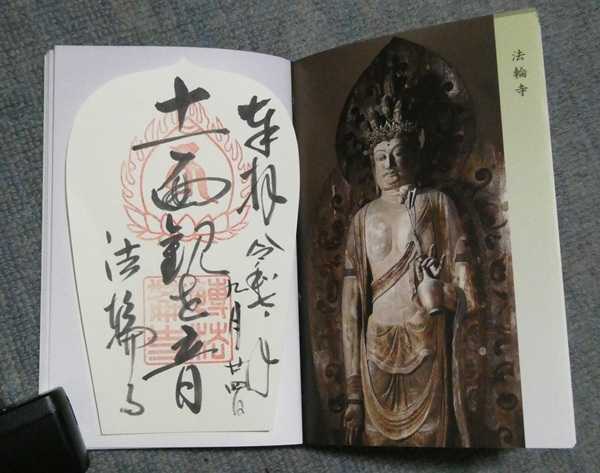 法輪寺
奉拝 令和七年
九月廿四日
十一面観世音
法輪寺